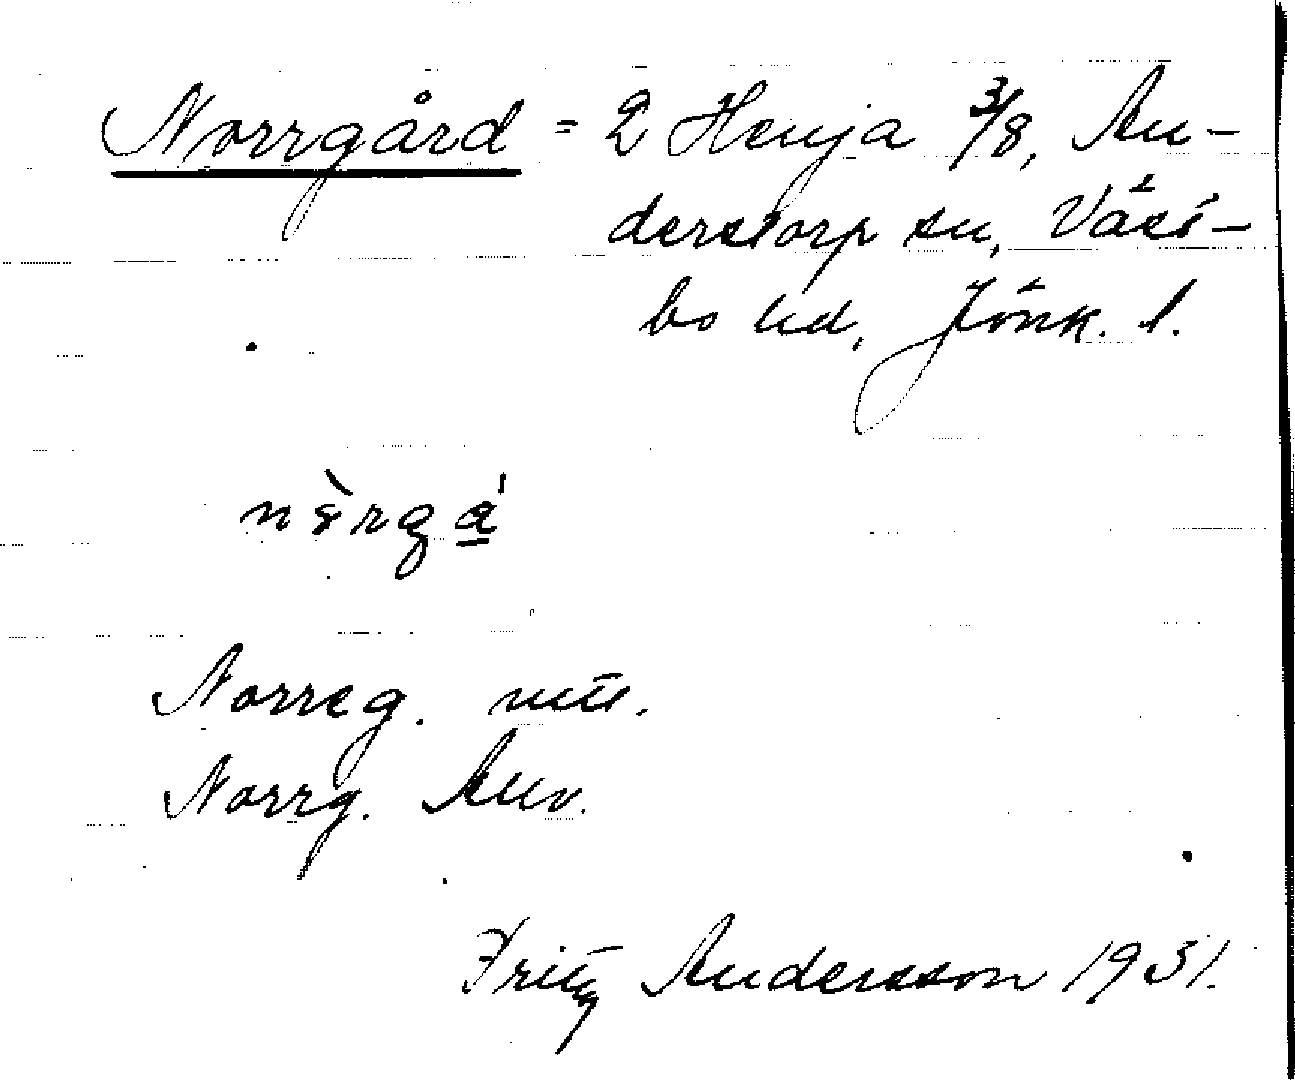 Norrgård = 2 Henja 3/8, An-
derstorp sn, Väst-
bo hd, Jönk. l.
Norreg. mtl.
Norrg. Anv.
Fritz Andersson 1931.